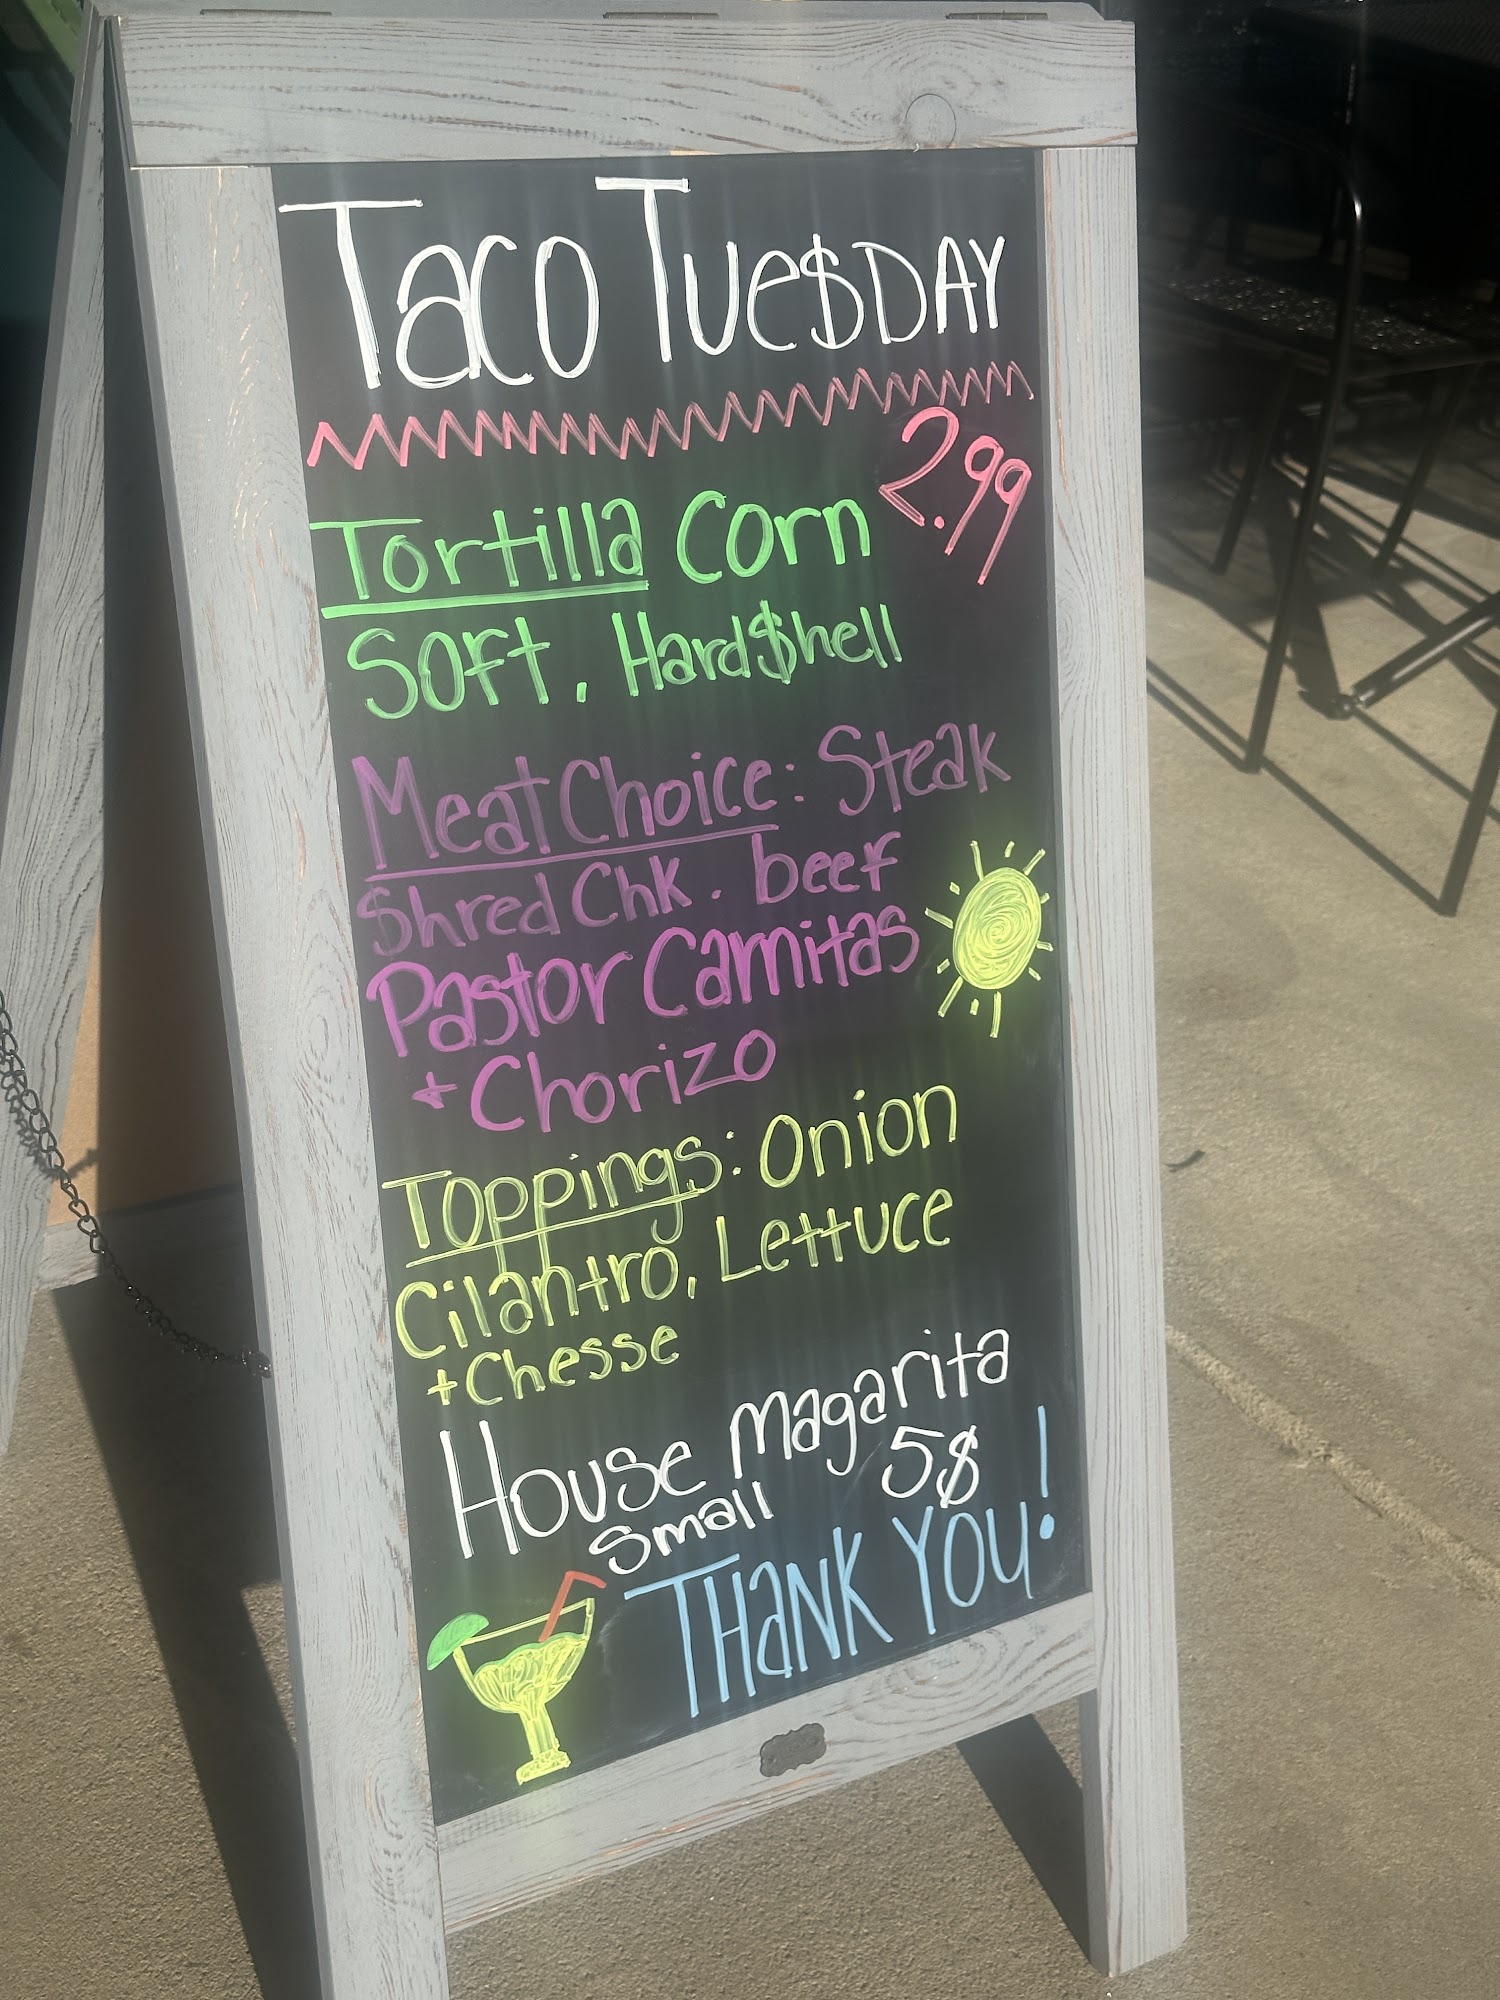 Taco Tue$DAY
2.99
Tortilla Corn
Soft, Hard$hell
Meat Choice: Steak
$hred Chk. beef
Pastor Carnitas
+ Chorizo
Toppings: Onion
Cilantro, Lettuce
+ Chesse
House Magarita
Small 5$
THaNK YOU!